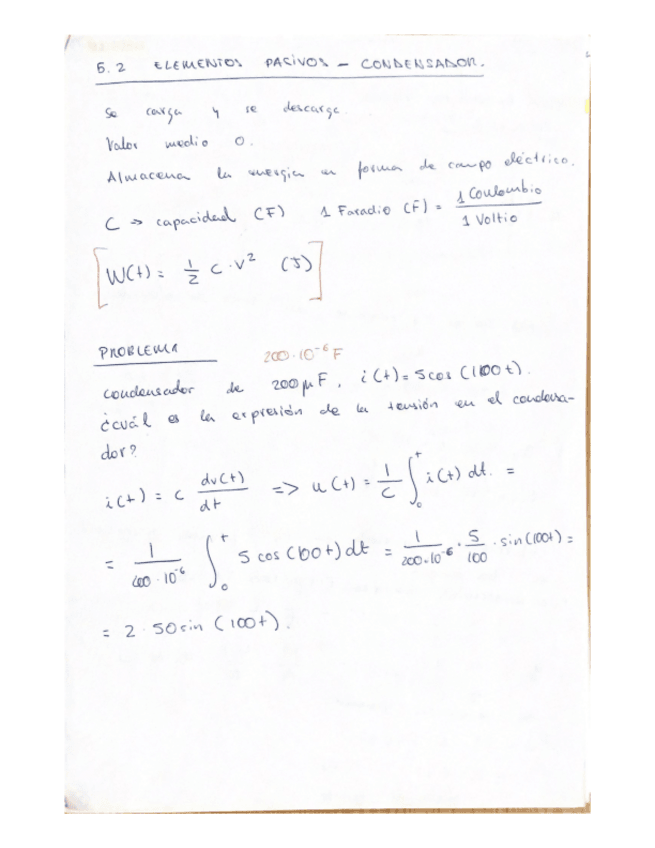 5.2 ELEMENTOS PASIVOS - CONDENSADOR.
Se carga y se descarga.
Valor medio 0.
Almacena la energia en forma de campo eléctrico.
C => capacidad (F) 1 Faradio (F) = 1 Coulombio / 1 Voltio
W(t) = 1/2 C · V² (J)
PROBLEMA
200·10⁻⁶ F
condensador de 200 μF, i(t) = 5cos(100t).
¿cuál es la expresión de la tensión en el condensa-
dor?
i(t) = C dv(t)/dt => u(t) = 1/C ∫₀ᵗ i(t) dt. =
= 1/200·10⁻⁶ ∫₀ᵗ 5 cos(100t) dt = 1/200·10⁻⁶ · 5/100 · sin(100t) =
= 2·50 sin(100t).